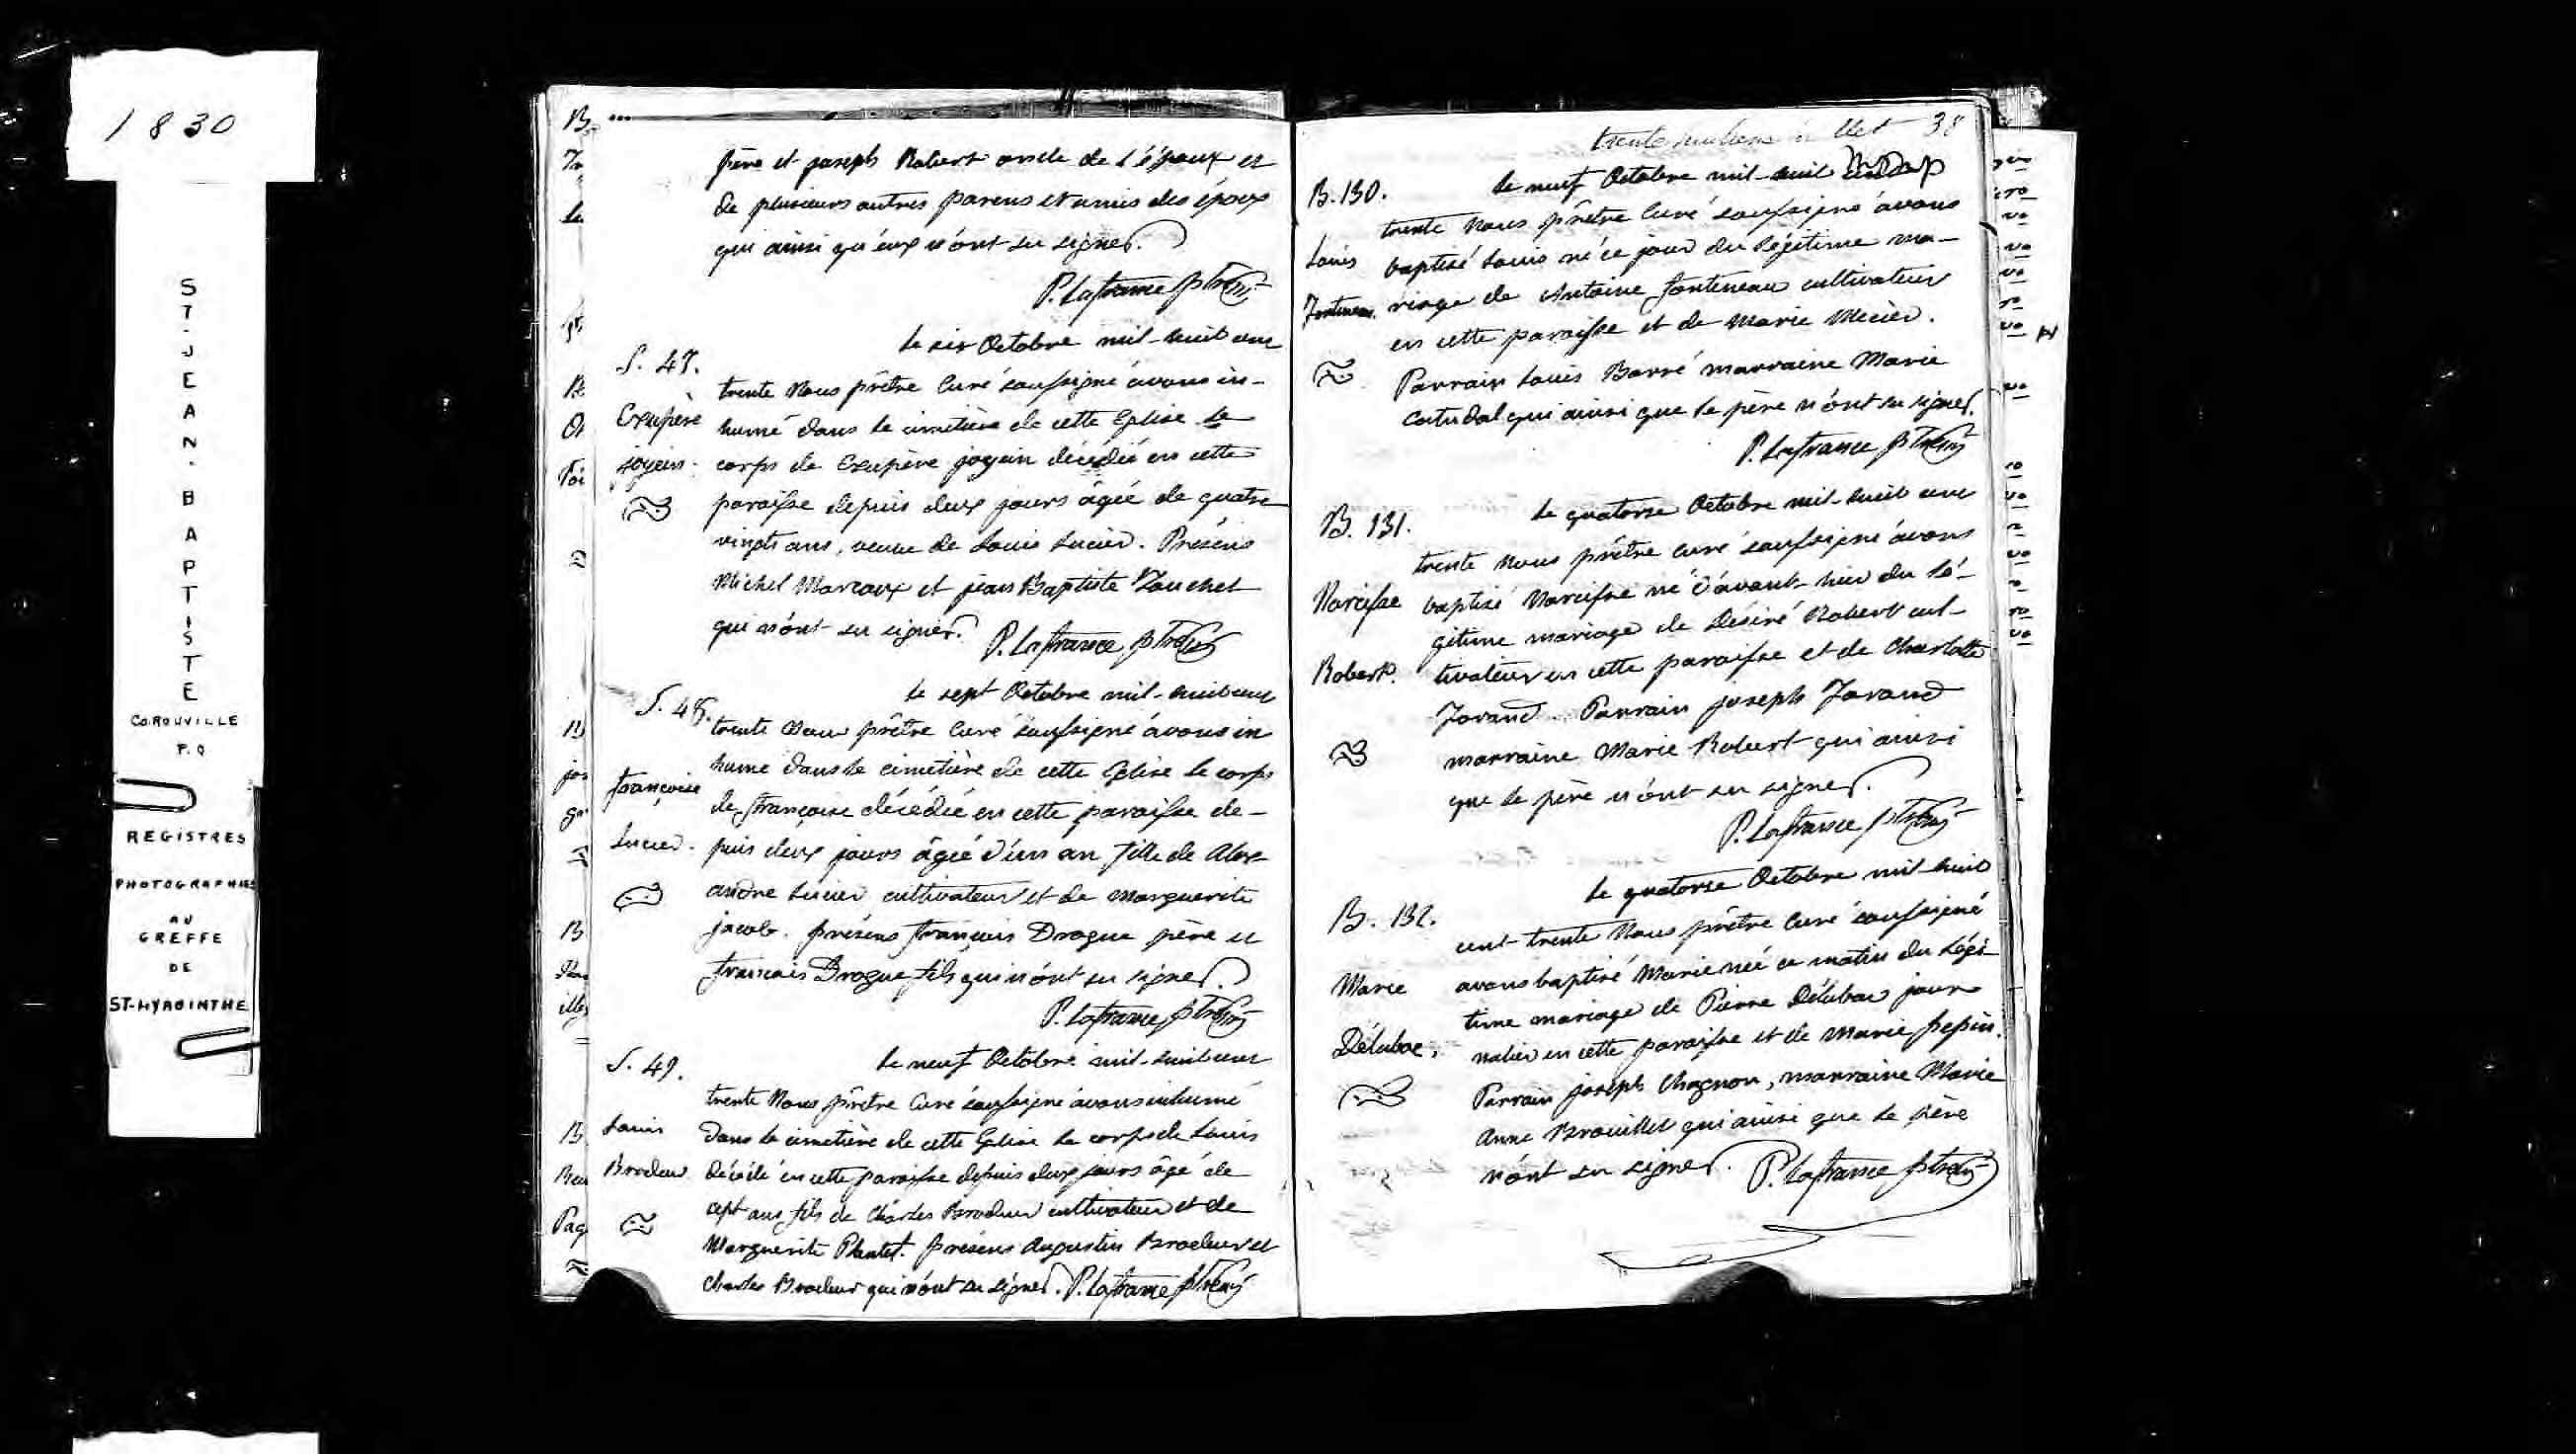 1830
ST-JEAN-BAPTISTE
CO. ROUVILLE
P.Q
REGISTRES
PHOTOGRAPHIES
AU
GREFFE
DE
ST-HYACINTHE
père et joseph Robert oncle de l'époux et
de plusieurs autres parens et amis des époux
qui ainsi qu'eux n'ont su signer.
P. Lafrance ptre
S. 47.
Exupère
joyein.
Le six Octobre mil-huit cent
trente Nous prêtre Curé soussigné avons in-
humé dans le cimetière de cette Eglise le
corps de Exupère joyein décédée en cette
paroisse depuis deux jours âgée de quatre
vingts ans, veuve de Louis Lucier. Présens
Michel Marcoux et jean Baptiste
qui n'ont su signer. P. Lafrance ptre
S. 48.
françoise
Lucier.
Le sept Octobre mil-huit cent
trente Nous prêtre Curé soussigné avons in
humé dans le cimetière de cette Eglise le corps
de françoise décédée en cette paroisse de-
puis deux jours âgée d'un an fille de Alex-
andre Lucier cultivateur et de Marguerite
jacob. présens françois Drogue père et
francois Drogue fils qui n'ont su signer.
P. Lafrance ptre
S. 49.
Louis
Brodeur
Le neuf Octobre mil-huit cent
trente Nous prêtre Curé soussigné avons inhumé
dans le cimetière de cette Eglise le corps de Louis
décédé en cette paroisse depuis deux jours âgé de
sept ans fils de Charles Brodeur cultivateur et de
Marguerite. présens Augustin Brodeur et
Charles Brodeur qui n'ont su signer. P. Lafrance ptre
38
B. 130.
Louis
Fonteneau.
Le neuf Octobre mil-huit cent
trente Nous prêtre Curé soussigné avons
baptisé Louis né ce jour du légitime ma-
riage de Antoine fonteneau cultivateur
en cette paroisse et de Marie.
Parrain Louis Barré marraine Marie
Catudal qui ainsi que le père n'ont su signer.
P. Lafrance ptre
B. 131.
Narcisse
Robert.
Le quatorze Octobre mil-huit cent
trente Nous prêtre curé soussigné avons
baptisé Narcisse né d'avant-hier du lé-
gitime mariage de Désiré Robert cul-
tivateur en cette paroisse et de Charlotte
Parrain joseph
marraine Marie Robert qui ainsi
que le père n'ont su signer.
P. Lafrance ptre
B. 132.
Marie
Délubac.
Le quatorze Octobre mil-huit
cent trente Nous prêtre Curé soussigné
avons baptisé Marie née ce matin du légi
time mariage de Pierre Délubac jour
nalier en cette paroisse et de Marie pepin.
Parrain joseph Chagnon, marraine Marie
Anne Brouillet qui ainsi que le père
n'ont su signer. P. Lafrance ptre